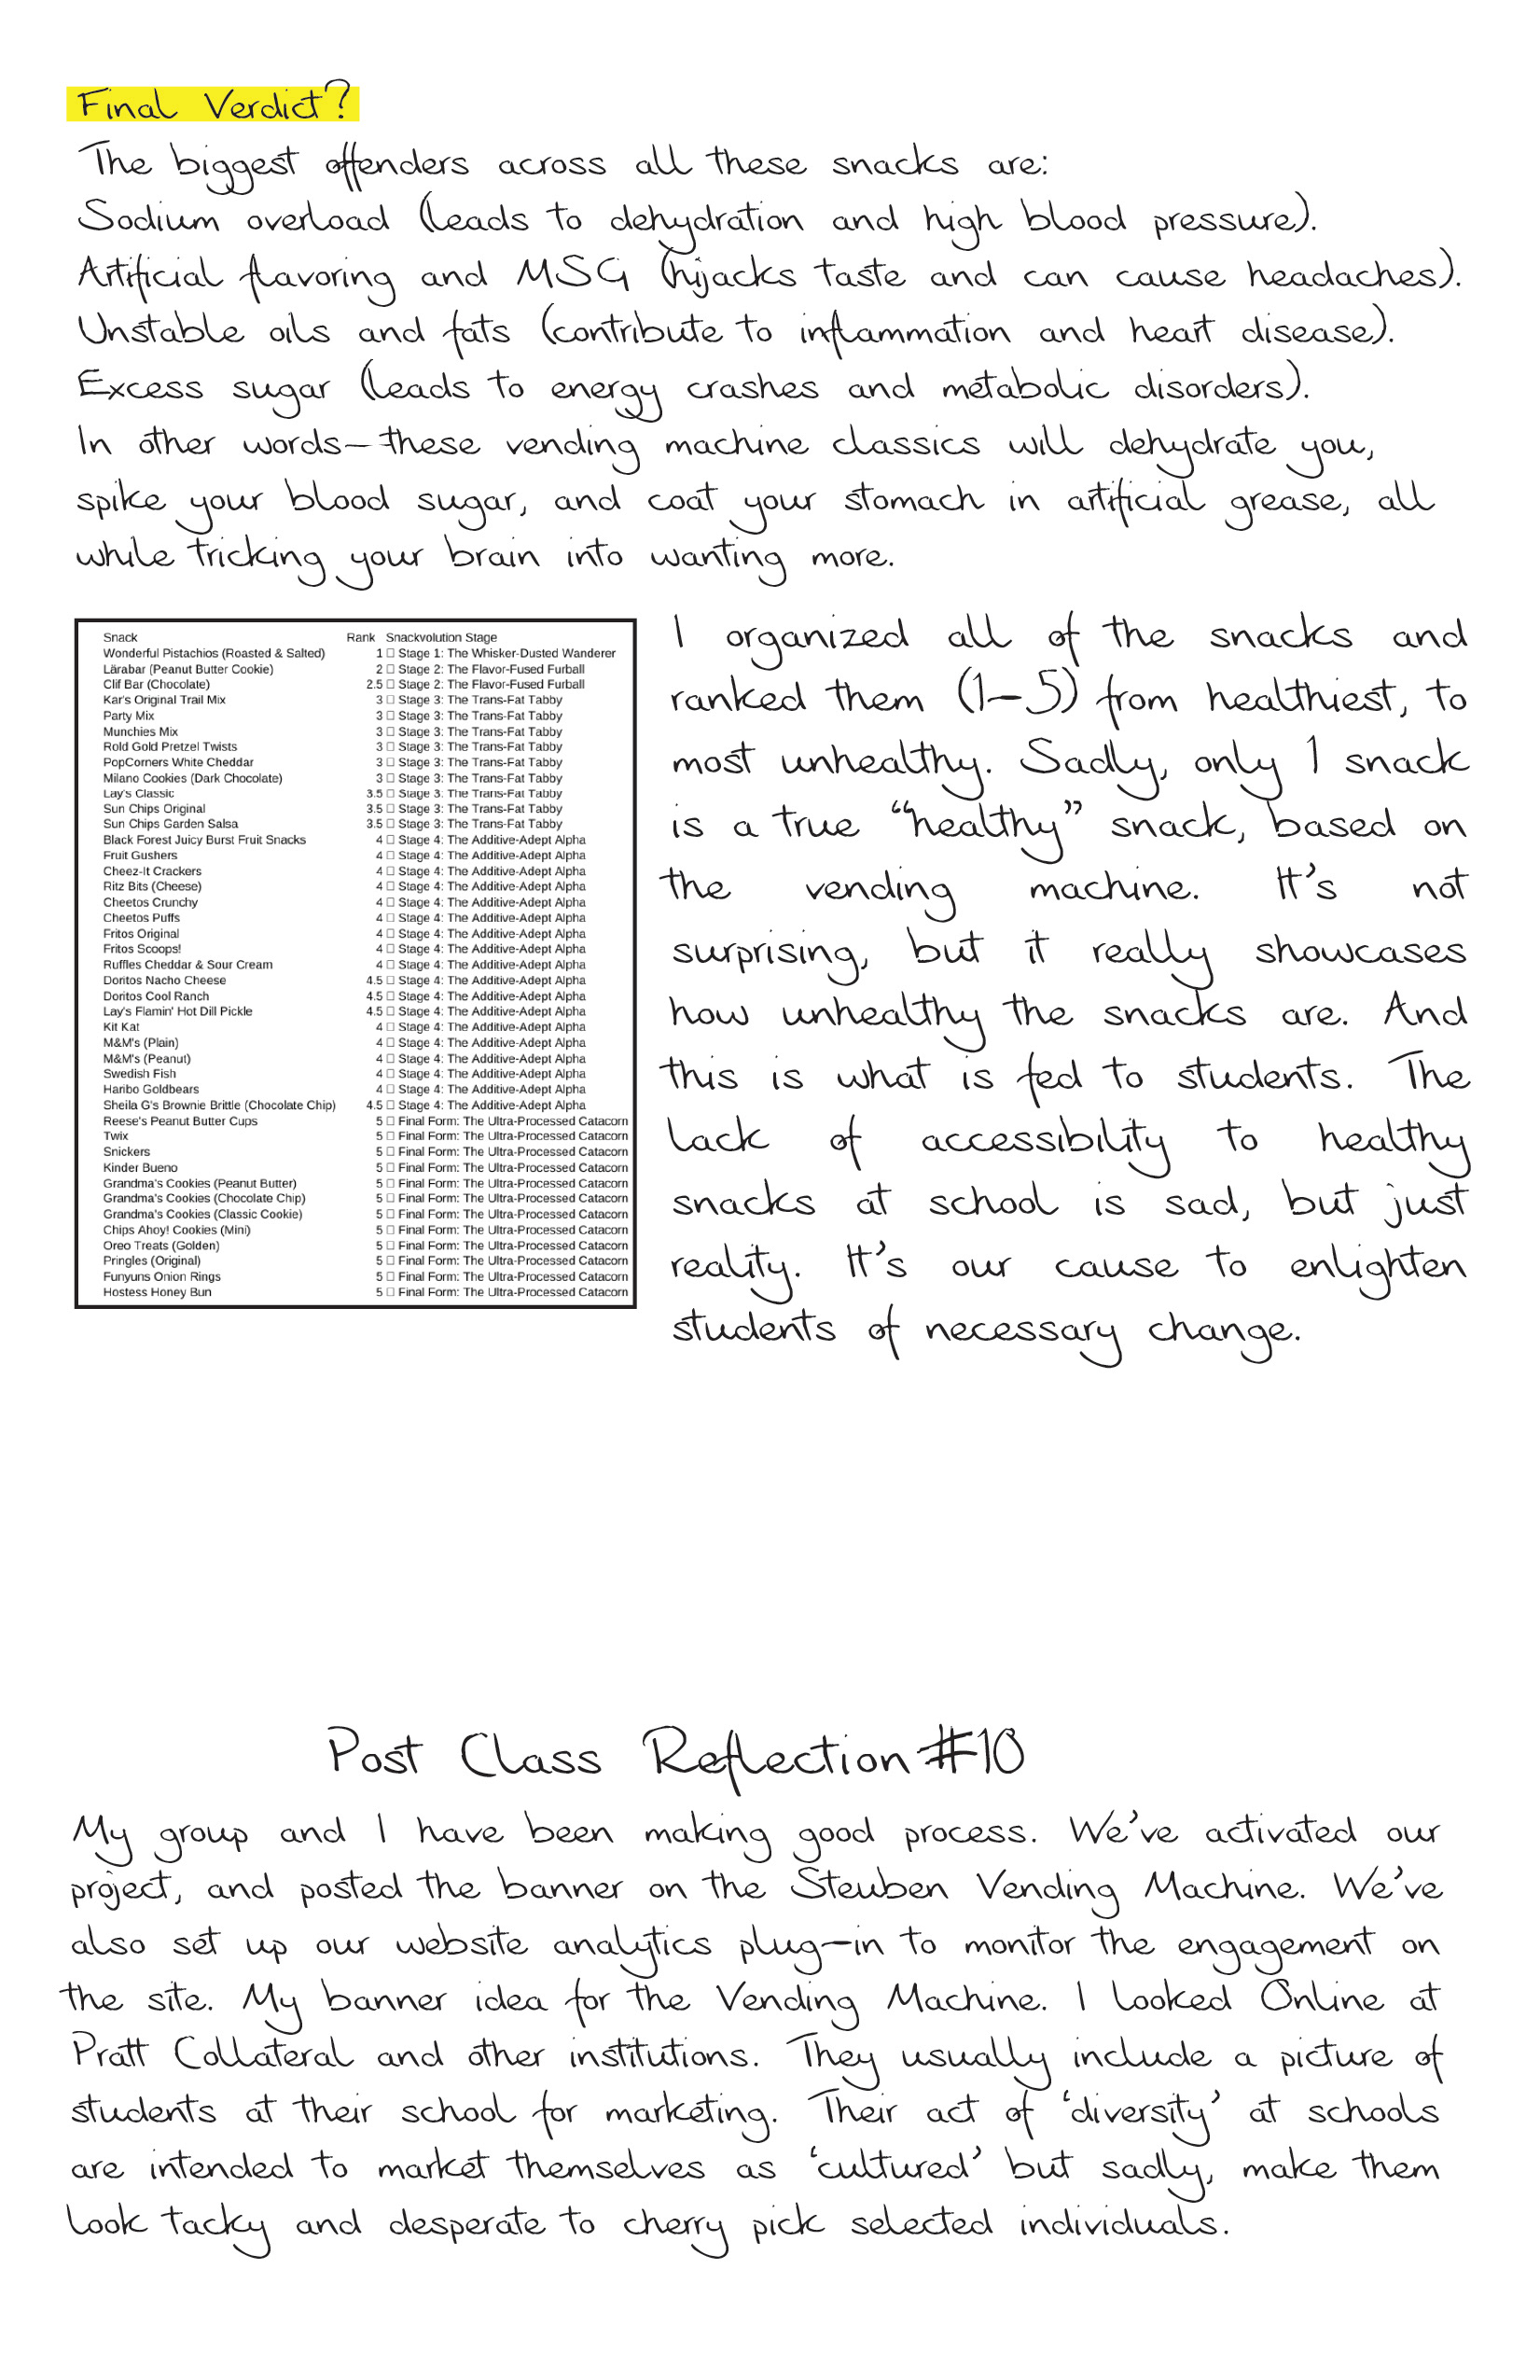 Final Verdict?
The biggest offenders across all these snacks are:
Sodium overload (leads to dehydration and high blood pressure).
Artificial flavoring and MSG (hijacks taste and can cause headaches).
Unstable oils and fats (contribute to inflammation and heart disease).
Excess sugar (leads to energy crashes and metabolic disorders).
In other words—these vending machine classics will dehydrate you,
spike your blood sugar, and coat your stomach in artificial grease, all
while tricking your brain into wanting more.
Snack Rank Snackvolution Stage
Wonderful Pistachios (Roasted & Salted) 1 □ Stage 1: The Whisker-Dusted Wanderer
Lärabar (Peanut Butter Cookie) 2 □ Stage 2: The Flavor-Fused Furball
Clif Bar (Chocolate) 2.5 □ Stage 2: The Flavor-Fused Furball
Kar's Original Trail Mix 3 □ Stage 3: The Trans-Fat Tabby
Party Mix 3 □ Stage 3: The Trans-Fat Tabby
Munchies Mix 3 □ Stage 3: The Trans-Fat Tabby
Rold Gold Pretzel Twists 3 □ Stage 3: The Trans-Fat Tabby
PopCorners White Cheddar 3 □ Stage 3: The Trans-Fat Tabby
Milano Cookies (Dark Chocolate) 3 □ Stage 3: The Trans-Fat Tabby
Lay's Classic 3.5 □ Stage 3: The Trans-Fat Tabby
Sun Chips Original 3.5 □ Stage 3: The Trans-Fat Tabby
Sun Chips Garden Salsa 3.5 □ Stage 3: The Trans-Fat Tabby
Black Forest Juicy Burst Fruit Snacks 4 □ Stage 4: The Additive-Adept Alpha
Fruit Gushers 4 □ Stage 4: The Additive-Adept Alpha
Cheez-It Crackers 4 □ Stage 4: The Additive-Adept Alpha
Ritz Bits (Cheese) 4 □ Stage 4: The Additive-Adept Alpha
Cheetos Crunchy 4 □ Stage 4: The Additive-Adept Alpha
Cheetos Puffs 4 □ Stage 4: The Additive-Adept Alpha
Fritos Original 4 □ Stage 4: The Additive-Adept Alpha
Fritos Scoops! 4 □ Stage 4: The Additive-Adept Alpha
Ruffles Cheddar & Sour Cream 4 □ Stage 4: The Additive-Adept Alpha
Doritos Nacho Cheese 4.5 □ Stage 4: The Additive-Adept Alpha
Doritos Cool Ranch 4.5 □ Stage 4: The Additive-Adept Alpha
Lay's Flamin' Hot Dill Pickle 4.5 □ Stage 4: The Additive-Adept Alpha
Kit Kat 4 □ Stage 4: The Additive-Adept Alpha
M&M's (Plain) 4 □ Stage 4: The Additive-Adept Alpha
M&M's (Peanut) 4 □ Stage 4: The Additive-Adept Alpha
Swedish Fish 4 □ Stage 4: The Additive-Adept Alpha
Haribo Goldbears 4 □ Stage 4: The Additive-Adept Alpha
Sheila G's Brownie Brittle (Chocolate Chip) 4.5 □ Stage 4: The Additive-Adept Alpha
Reese's Peanut Butter Cups 5 □ Final Form: The Ultra-Processed Catacorn
Twix 5 □ Final Form: The Ultra-Processed Catacorn
Snickers 5 □ Final Form: The Ultra-Processed Catacorn
Kinder Bueno 5 □ Final Form: The Ultra-Processed Catacorn
Grandma's Cookies (Peanut Butter) 5 □ Final Form: The Ultra-Processed Catacorn
Grandma's Cookies (Chocolate Chip) 5 □ Final Form: The Ultra-Processed Catacorn
Grandma's Cookies (Classic Cookie) 5 □ Final Form: The Ultra-Processed Catacorn
Chips Ahoy! Cookies (Mini) 5 □ Final Form: The Ultra-Processed Catacorn
Oreo Treats (Golden) 5 □ Final Form: The Ultra-Processed Catacorn
Pringles (Original) 5 □ Final Form: The Ultra-Processed Catacorn
Funyuns Onion Rings 5 □ Final Form: The Ultra-Processed Catacorn
Hostess Honey Bun 5 □ Final Form: The Ultra-Processed Catacorn
I organized all of the snacks and
ranked them (1–5) from healthiest, to
most unhealthy. Sadly, only 1 snack
is a true “healthy” snack, based on
the vending machine. It’s not
surprising, but it really showcases
how unhealthy the snacks are. And
this is what is fed to students. The
lack of accessibility to healthy
snacks at school is sad, but just
reality. It’s our cause to enlighten
students of necessary change.
Post Class Reflection #10
My group and I have been making good process. We’ve activated our
project, and posted the banner on the Steuben Vending Machine. We’ve
also set up our website analytics plug-in to monitor the engagement on
the site. My banner idea for the Vending Machine. I looked Online at
Pratt Collateral and other institutions. They usually include a picture of
students at their school for marketing. Their act of ‘diversity’ at schools
are intended to market themselves as ‘cultured’ but sadly, make them
look tacky and desperate to cherry pick selected individuals.